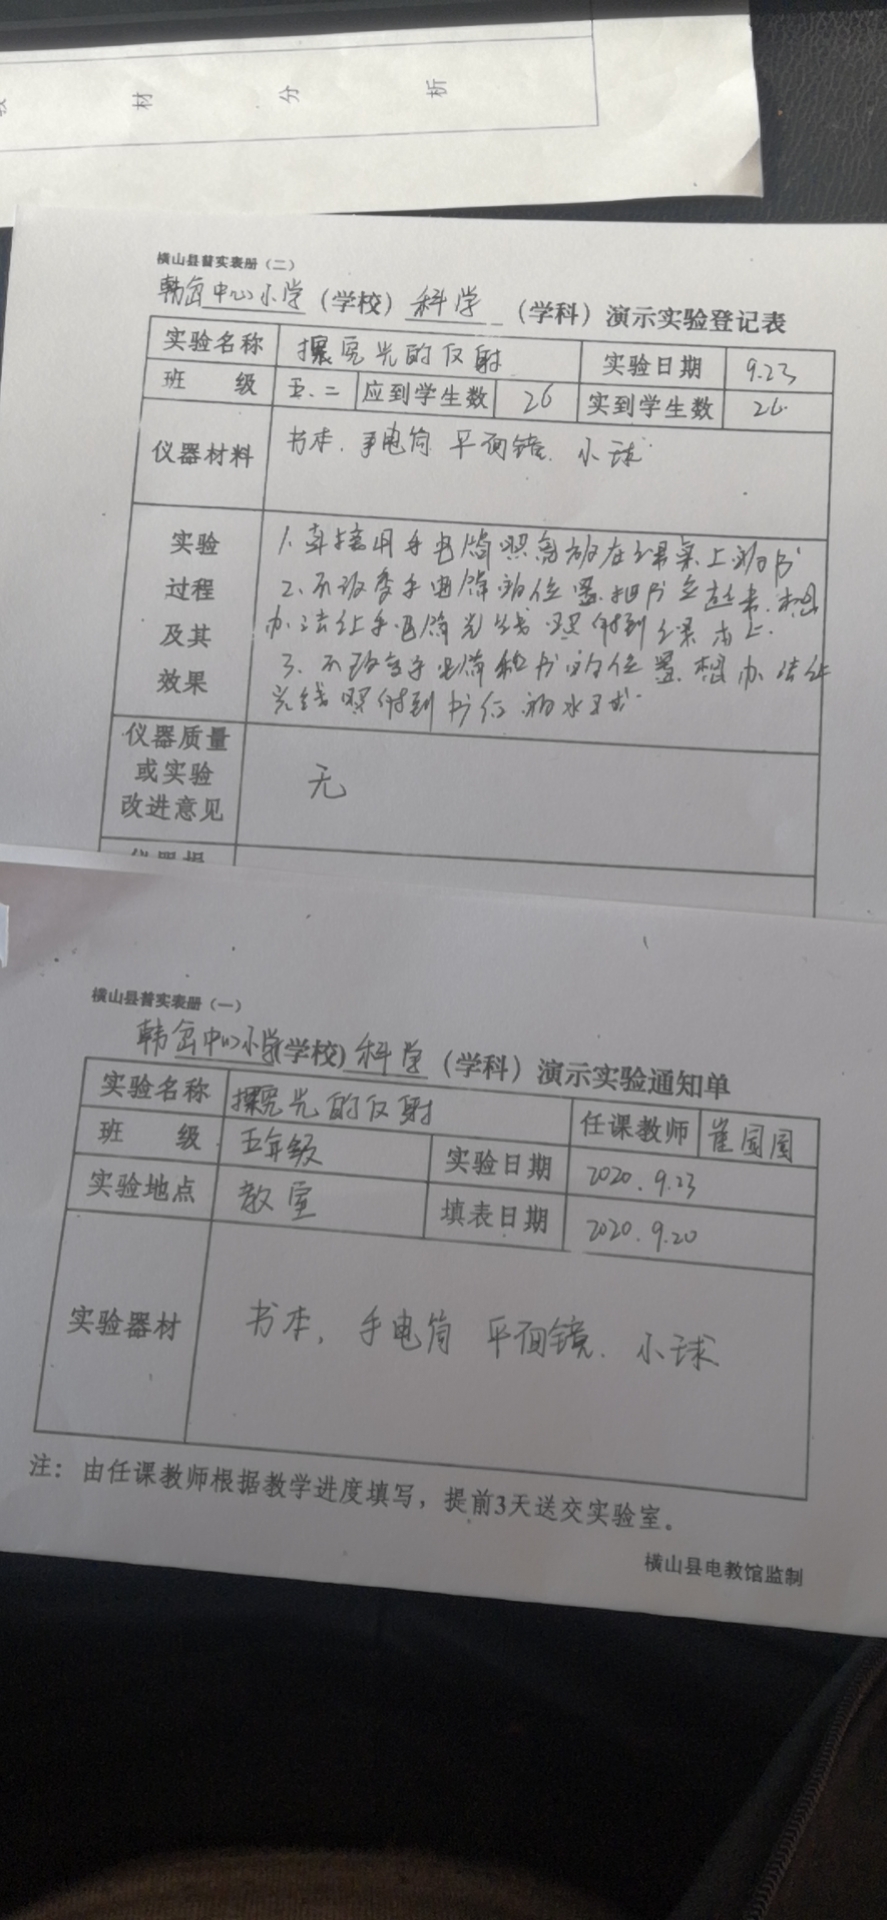 材 分 析
横山县普实表册（二）
韩岔中心小学（学校）科学（学科）演示实验登记表
实验名称 探究光的反射 实验日期 9.23
班 级 五.二 应到学生数 26 实到学生数 26.
仪器材料 书本.手电筒.平面镜.小球
实验
过程
及其
效果
1.直接用手电筒照射放在课桌上的书
2.不改变手电筒的位置.把书立起来.想
办法让手电筒光线照射到课本上.
3.不改变手电筒和书的位置.想办法让
光线照射到书后的水球.
仪器质量
或实验
改进意见
无
横山县普实表册（一）
韩岔中心小学(学校)科学（学科）演示实验通知单
实验名称 探究光的反射 任课教师 崔园园
班 级 五年级 实验日期 2020.9.23
实验地点 教室 填表日期 2020.9.20
实验器材 书本，手电筒 平面镜.小球
注：由任课教师根据教学进度填写，提前3天送交实验室。
横山县电教馆监制